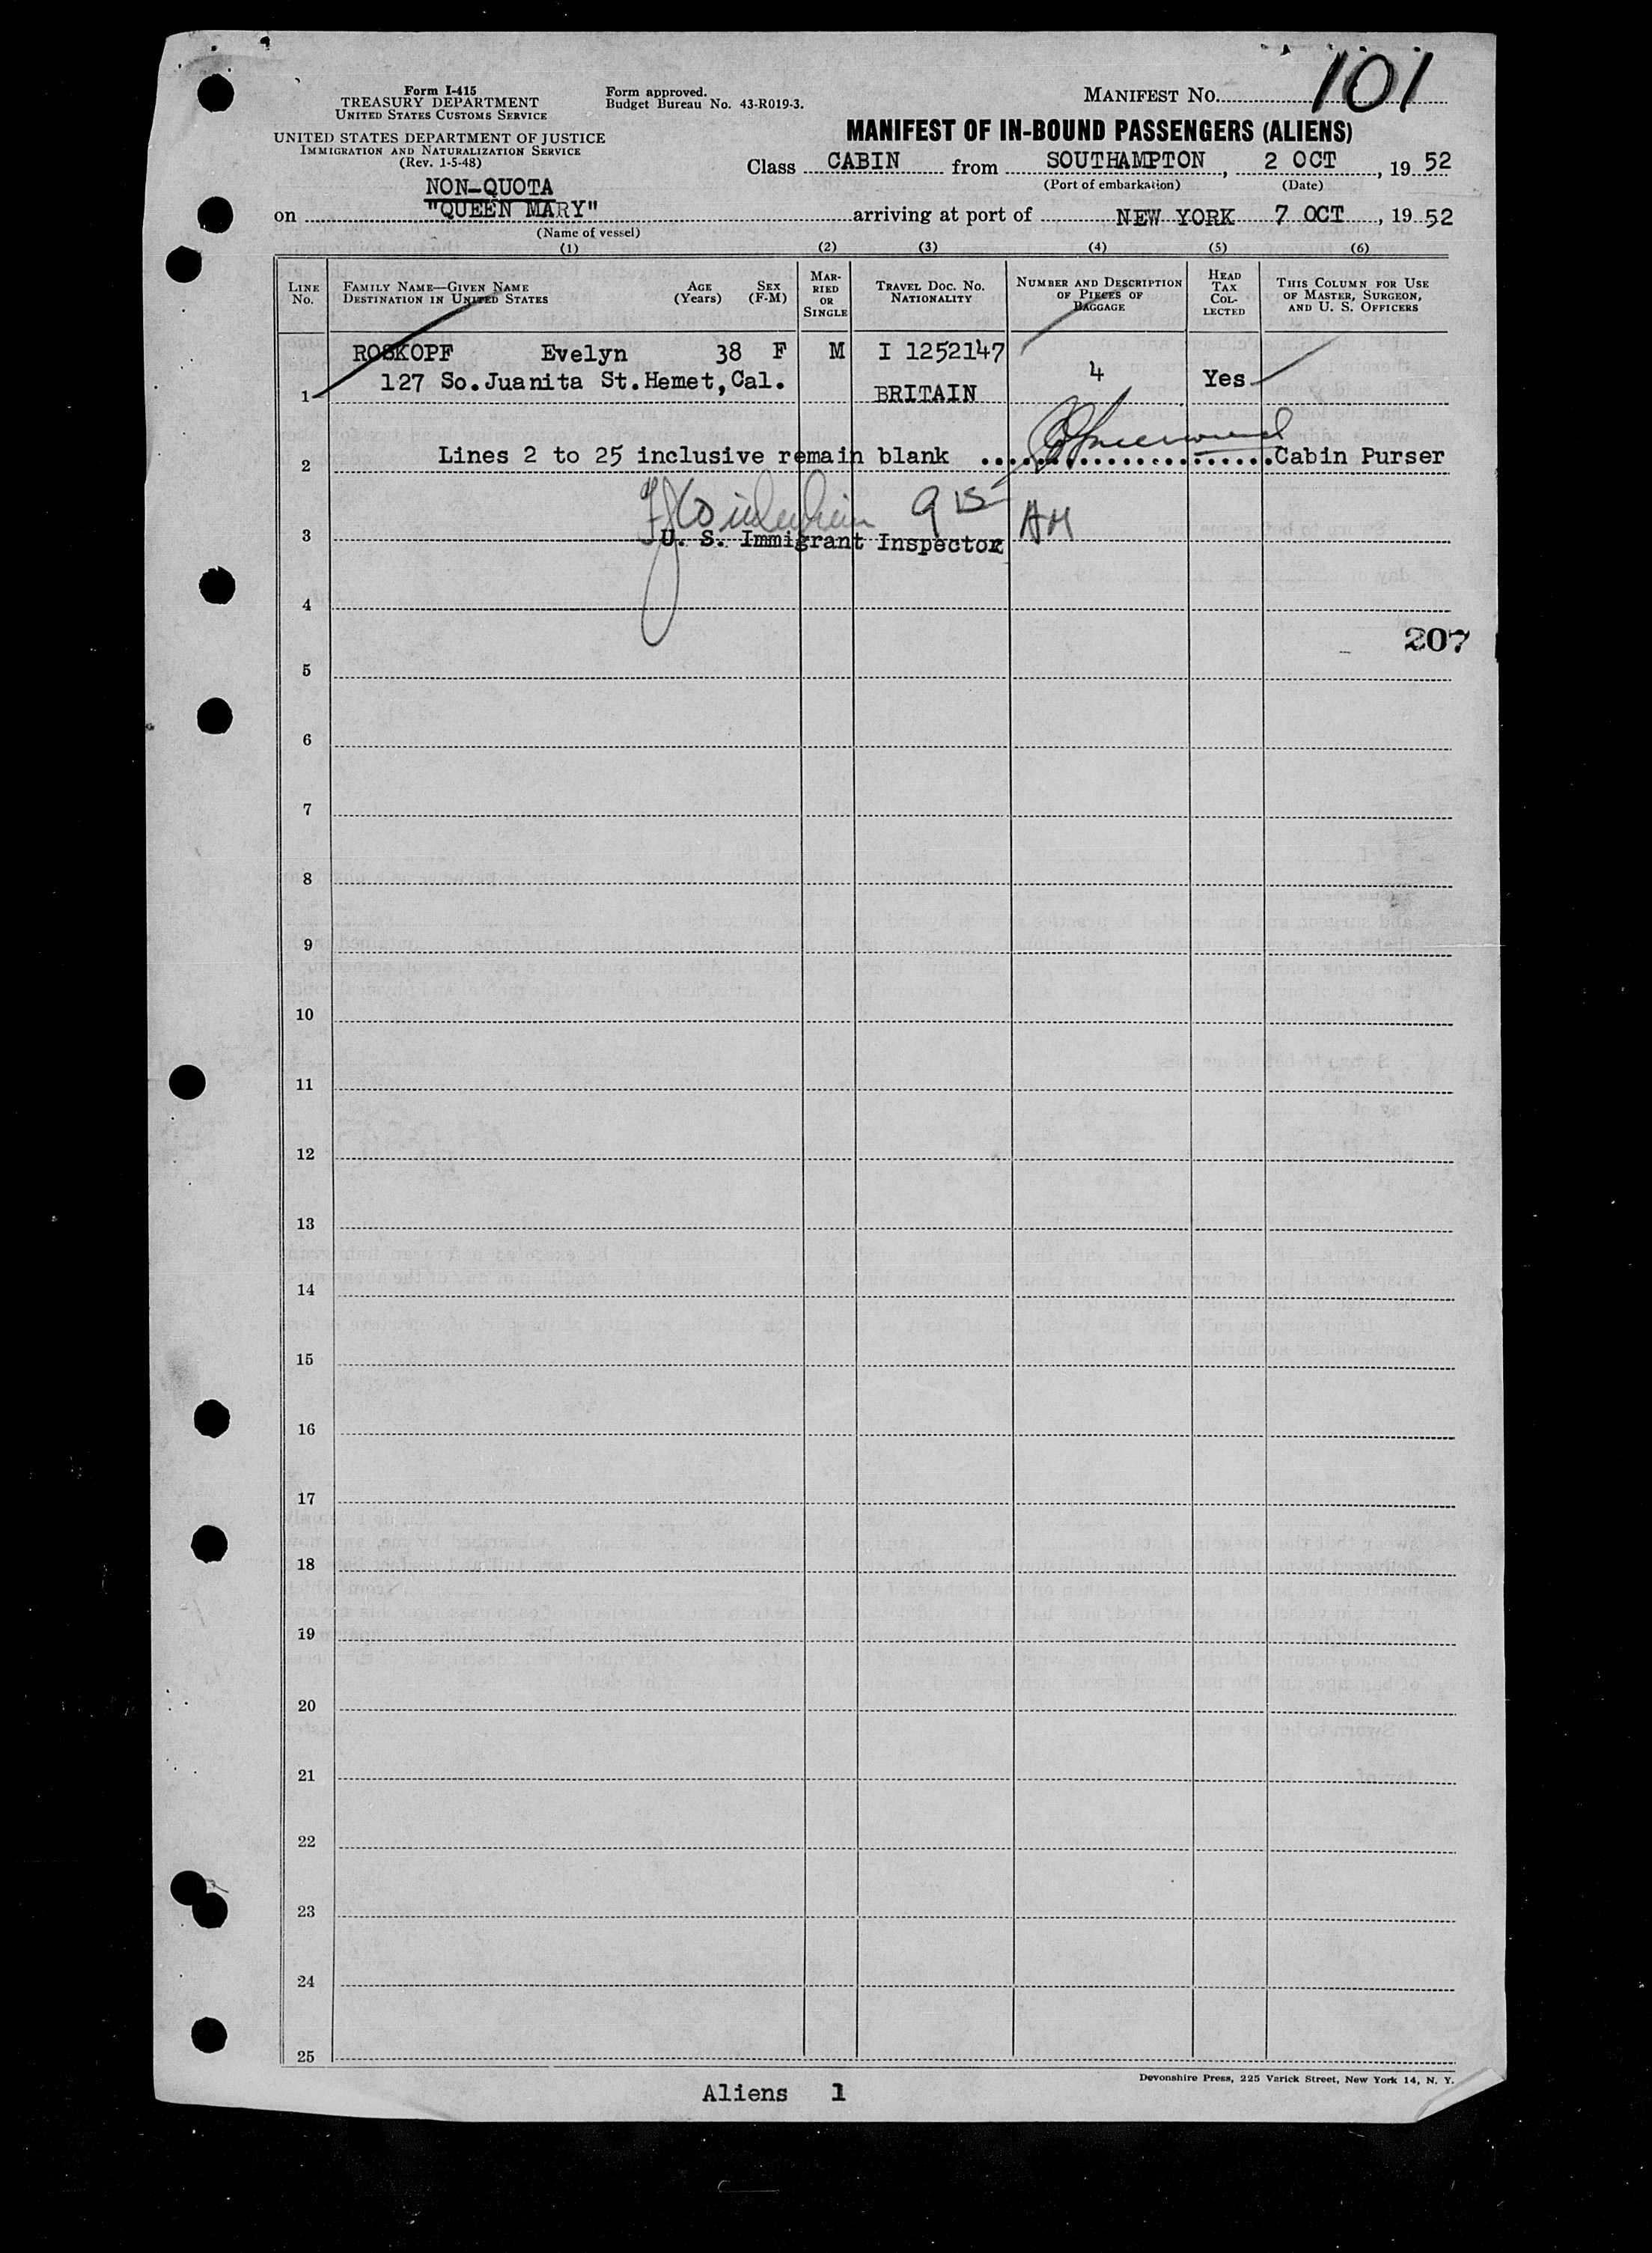 101
Form I-415
TREASURY DEPARTMENT
UNITED STATES CUSTOMS SERVICE
Form approved.
Budget Bureau No. 43-R019-3.
MANIFEST No.
UNITED STATES DEPARTMENT OF JUSTICE
IMMIGRATION AND NATURALIZATION SERVICE
(Rev. 1-5-48)
MANIFEST OF IN-BOUND PASSENGERS (ALIENS)
Class CABIN from SOUTHAMPTON, 2 OCT, 19 52
(Port of embarkation) (Date)
NON-QUOTA
on "QUEEN MARY" arriving at port of NEW YORK 7 OCT, 19 52
(Name of vessel)
(1) (2) (3) (4) (5) (6)
LINE No.
FAMILY NAME—GIVEN NAME
DESTINATION IN UNITED STATES
AGE (Years)
SEX (F-M)
MAR-RIED OR SINGLE
TRAVEL DOC. NO. NATIONALITY
NUMBER AND DESCRIPTION OF PIECES OF BAGGAGE
HEAD TAX COL-LECTED
THIS COLUMN FOR USE OF MASTER, SURGEON, AND U. S. OFFICERS
ROSKOPF Evelyn 38 F M I 1252147
127 So.Juanita St.Hemet,Cal. 4 Yes
1 BRITAIN
2 Lines 2 to 25 inclusive remain blank Cabin Purser
9 15 AM
3 U. S. Immigrant Inspector
4
207
5
6
7
8
9
10
11
12
13
14
15
16
17
18
19
20
21
22
23
24
25
Devonshire Press, 225 Varick Street, New York 14, N. Y.
Aliens 1